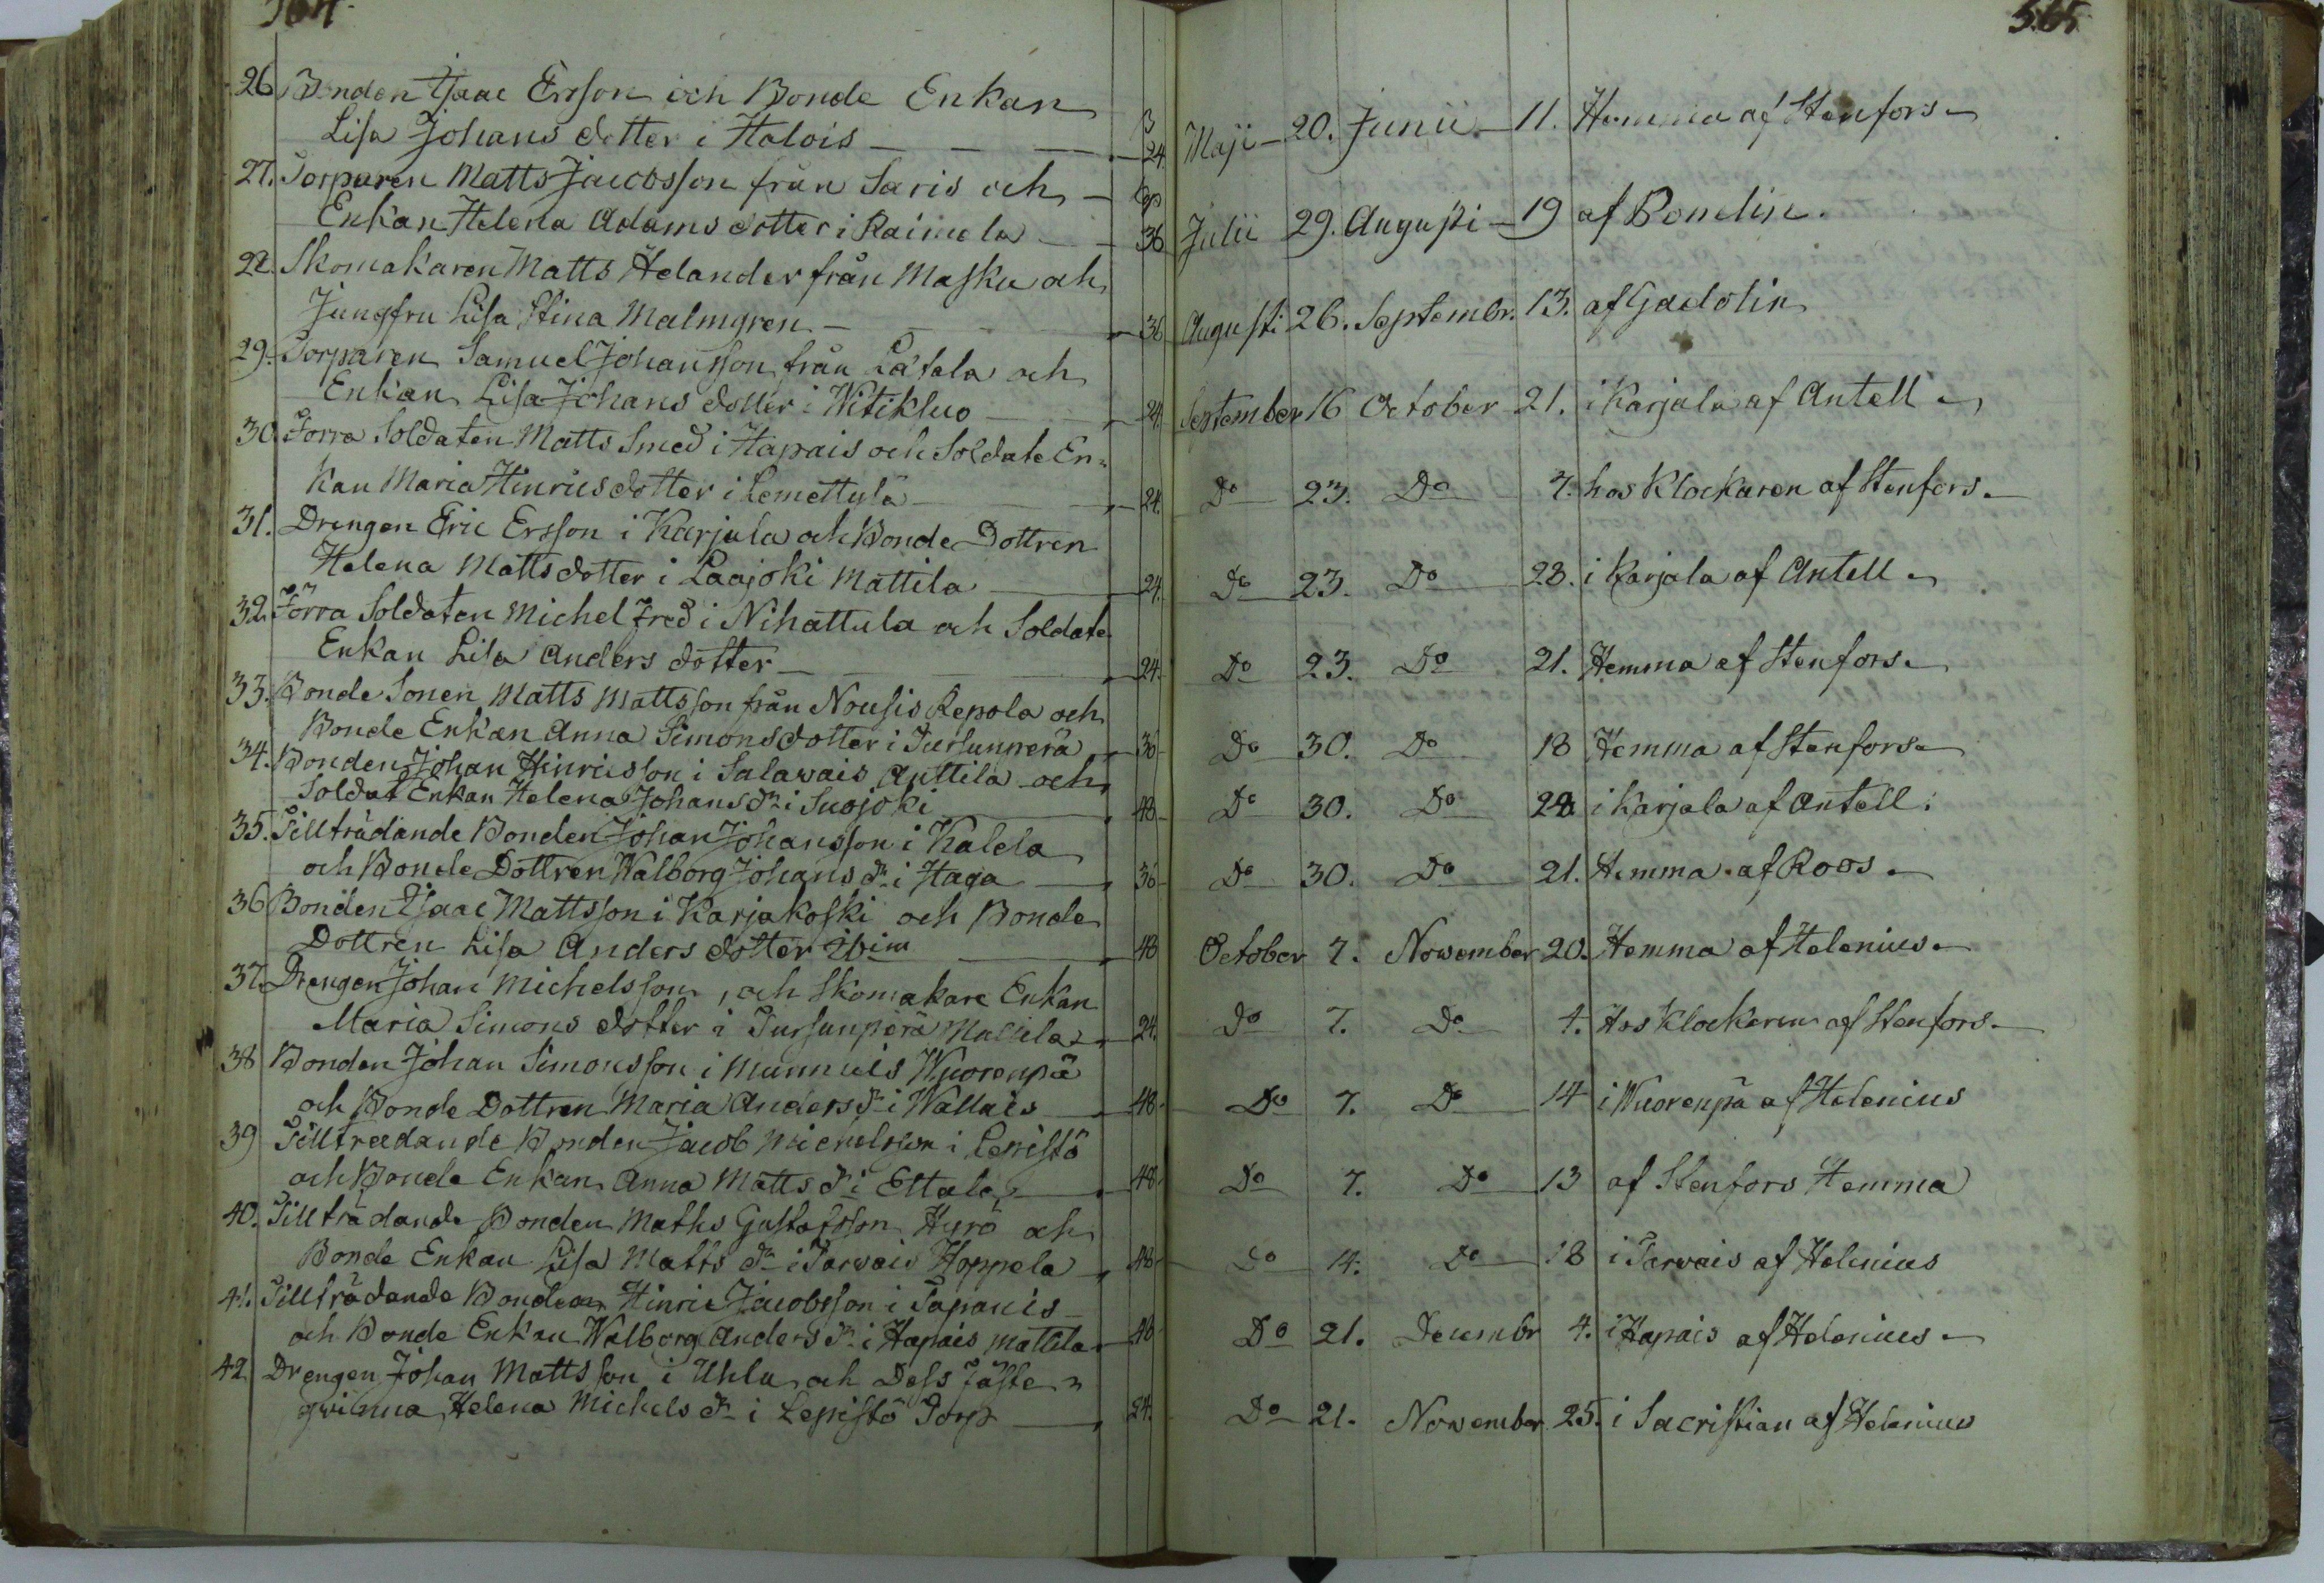 364. 565
26. Bonden Isaac Ersson och Bonde Enkan
Lisa Johans dotter i Halois — 24. Maji — 20. Junii — 11. Hemma af Stenfors
27. Torparen Matts Jacobsson från Saris och
Enkan Helena Adams dotter i Raimela — 36 Julii 29. Augusti — 19 af Bondlin.
28. Skomakaren Matts Helander från Masku och
Jungfru Lisa Stina Malmgren — 36 Augusti 26. Septembr. 13. af Gadolin
29. Torparen Samuel Johansson från Lätala och
Enkan Lisa Johans dotter i Witikluo — 24. September 16 October 21. i Karjala af Antell
30. Förra Soldaten Matts Smed i Hapais och Soldate En=
kan Maria Hinrics dotter i Lemettulä — 24. Do 23. Do 7. hos Klockaren af Stenfors.
31. Drengen Eric Ersson i Karjala och Bonde Dottren
Helena Matts dotter i Laajoki Mattila — 24. Do 23. Do 28. i Karjala af Antell
32. Förra Soldaten Michel Fred i Nihattula och Soldate
Enkan Lisa Anders dotter — 24. Do 23. Do 21. Hemma af Stenfors.
33. Bonde Sonen Matts Mattsson från Nousis Repola och
Bonde Enkan Anna Simons dotter i Tursunperä — 36 Do 30. Do 18 Hemma af Stenfors
34. Bonden Johan Hinricsson i Salawais Anttila och
Soldat Enkan Helena Johans dr i Suojoki — 48 Do 30. Do 28. i Karjala af Antell.
35. Tillträdande Bonden Johan Johansson i Kalela
och Bonde Dottren Walborg Johans dr i Haga — 36 Do 30. Do 21. Hemma af Roos
36 Bonden Isaac Mattsson i Karjakoski och Bonde
Dottren Lisa Anders dotter ibim — 48 October 7. November 20. Hemma af Helenius
37. Drengen Johan Michelsson, och Skomakare Enkan
Maria Simons dotter i Tursunperä Mattila — 24. Do 7. Do 4. Hos Klockaren af Stenfors.
38 Bonden Johan Simonsson i Munnuis Wuorenpä
och Bonde Dottren Maria Anders dr i Wallais — 48 Do 7. Do 14 i Wuorenpä af Helenius
39 Tillträdande Bonden Jacob Michelsson i Lepistö
och Bonde Enkan Anna Matts dr i Ettala — 48 Do 7. Do 13 af Stenfors Hemma
40. Tillträdande Bonden Maths Gustafsson Hyrö och
Bonde Enkan Lisa Matts dr i Tarvais Hoppela — 48 Do 14. Do 18 i Tarvais af Helenius
41. Tillträdande Bonden Hinric Jacobsson i Tapanis
och Bonde Enkan Walborg Anders dr i Hapais Mattila — 48 Do 21. Decembr 4. i Hapais af Helenius
42. Drengen Johan Mattsson i Uhlu och Dess Fäste=
qwinna Helena Michels dr i Lepistö Torp — 24. Do 21. November 25. i Sacristian af Helenius